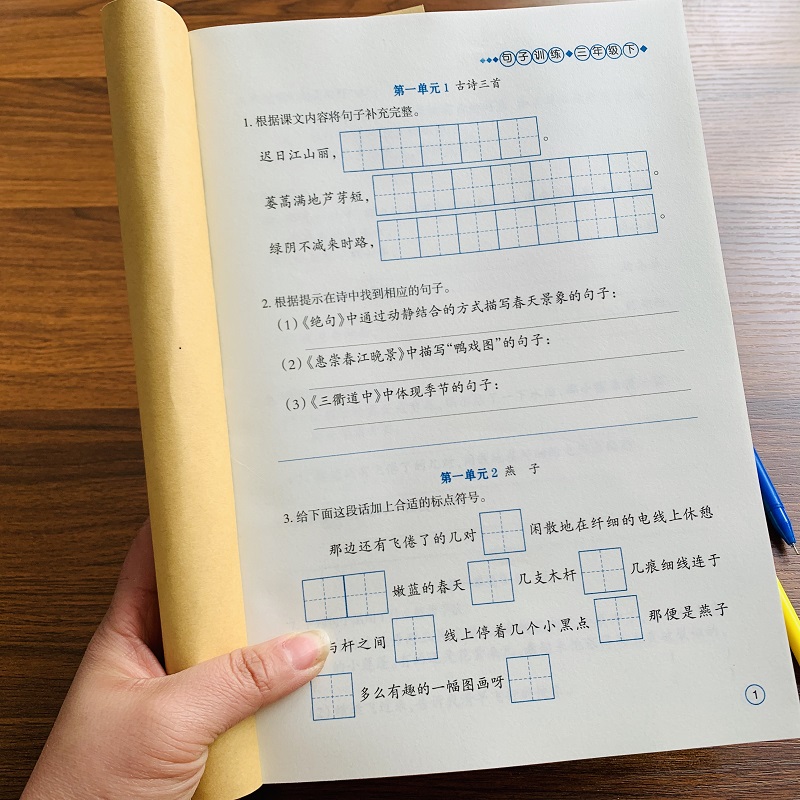 句子训练 三年级下
第一单元1 古诗三首
1. 根据课文内容将句子补充完整。
迟日江山丽，。
蒌蒿满地芦芽短，。
绿阴不减来时路，。
2. 根据提示在诗中找到相应的句子。
（1）《绝句》中通过动静结合的方式描写春天景象的句子：
（2）《惠崇春江晚景》中描写“鸭戏图”的句子：
（3）《三衢道中》中体现季节的句子：
第一单元2 燕 子
3. 给下面这段话加上合适的标点符号。
那边还有飞倦了的几对 闲散地在纤细的电线上休憩
嫩蓝的春天 几支木杆 几痕细线连于
与杆之间 线上停着几个小黑点 那便是燕子
多么有趣的一幅图画呀
1